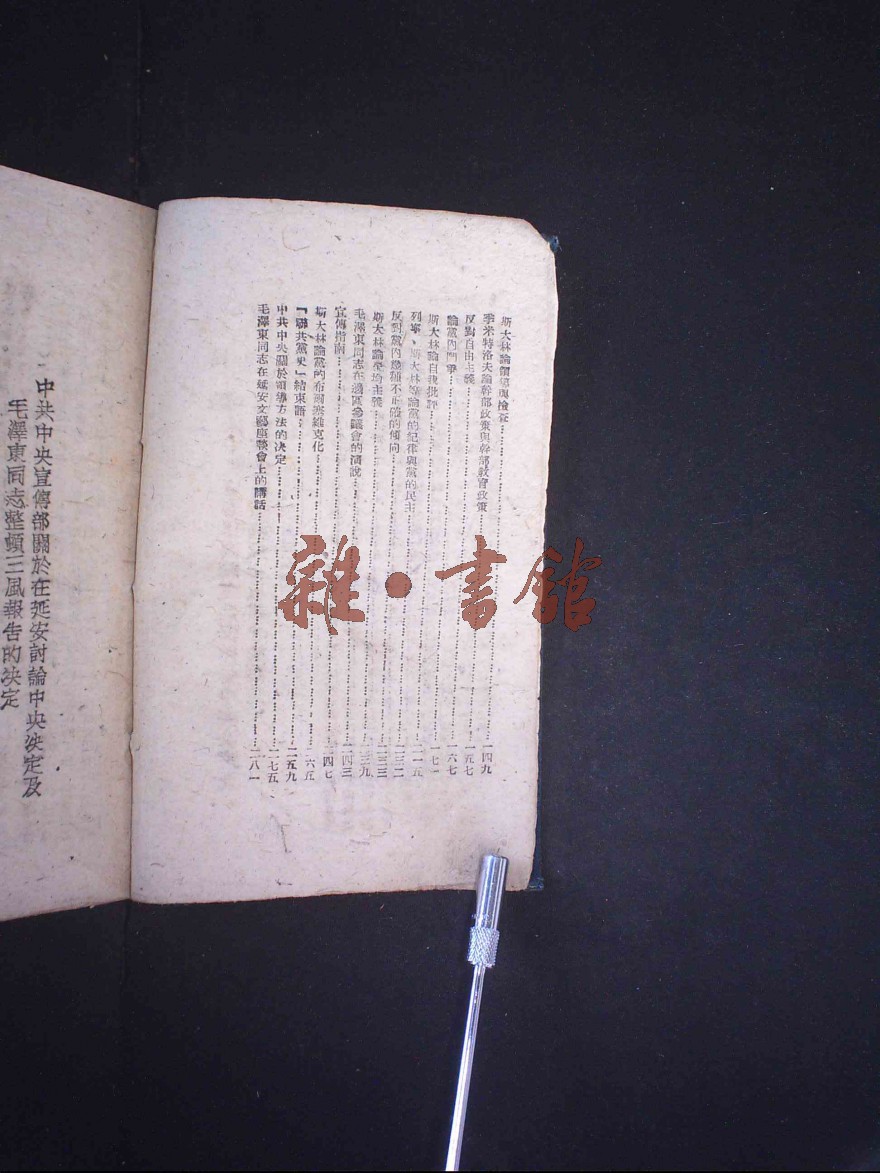 斯大林論領導與檢查……一四九
季米特洛夫論幹部政策與幹部教育政策……一五七
反對自由主義……一六七
論黨內鬥爭……一七一
斯大林論自我批評……二一五
列寧、斯大林等論黨的紀律與黨的民主……
反對黨內幾種不正確的傾向……
斯大林論平均主義……二三九
毛澤東同志在邊區參議會的演說……二四三
宣傳指南……二四七
斯大林論黨的布爾塞維克化……
「聯共黨史」結束語……二五九
中共中央關於領導方法的決定……二七五
毛澤東同志在延安文藝座談會上的講話……二八一
中共中央宣傳部關於在延安討論中央決定及
毛澤東同志整頓三風報告的決定
雜·書館